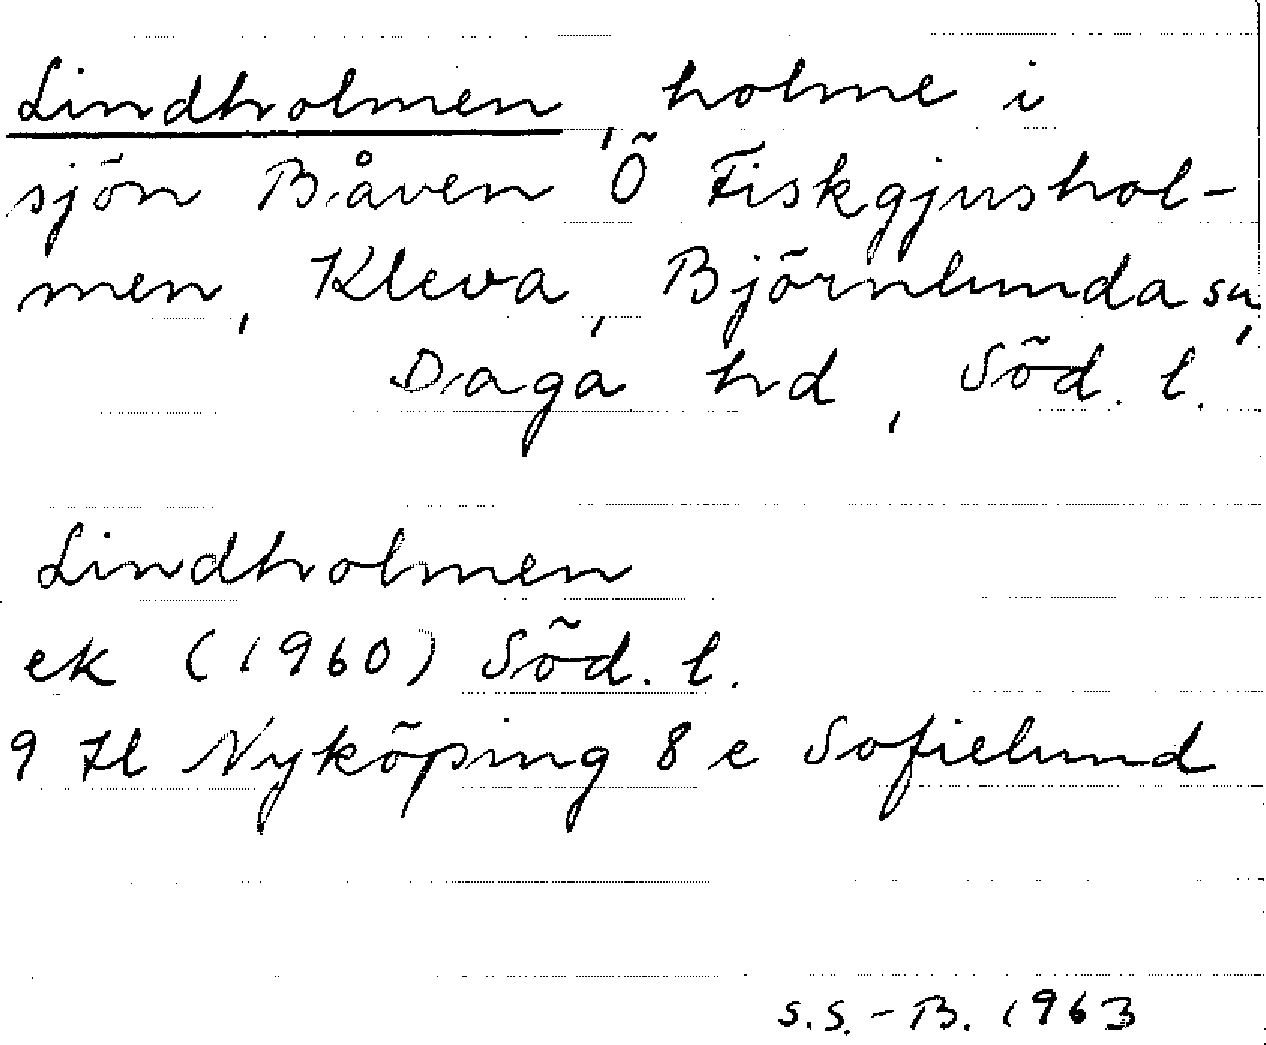 Lindholmen, holme i
sjön Båven Ö Fiskgjushol-
men, Kleva, Björnlunda sn,
Daga hd, Söd. l.
Lindholmen
ek (1960) Söd. l.
9 H l Nyköping 8 e Sofielund
S.S.-B. 1963